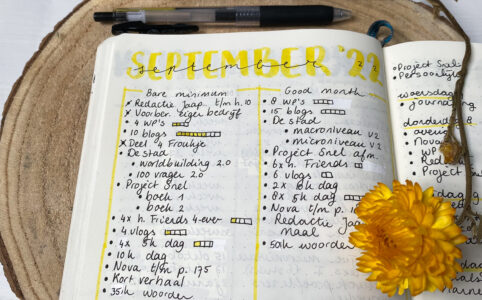 SEPTEMBER '22
september
Bare minimum
x Redactie Jaap t/m h.10
x Voorber. eigen bedrijf
x 4 WP's
• 10 blogs
x Deel 4 Froukje
• De stad
• worldbuilding 2.0
• 100 vragen 2.0
• Project Snel
• boek 1
• boek 2
• 4x h. Friends 4-ever
• 4 vlogs
• 4x 5k dag
• 10k dag
• Nova t/m p. 175
• Kort verhaal
• 35k woorden
Good month
• 8 WP's
• 15 blogs
• De stad
• macroniveau v2
• microniveau v2
• Project Snel afm.
• 6x h. Friends
• 6 vlogs
• 2x 8k dag
• 8x 5k dag
• Nova t/m p.
• Redactie Jaap
maal
• 50k woorden
• Project Snel
• Persoonlijk
woensdag
• journaling
donderdag
• Nova
• WP
• Redactie
• Project